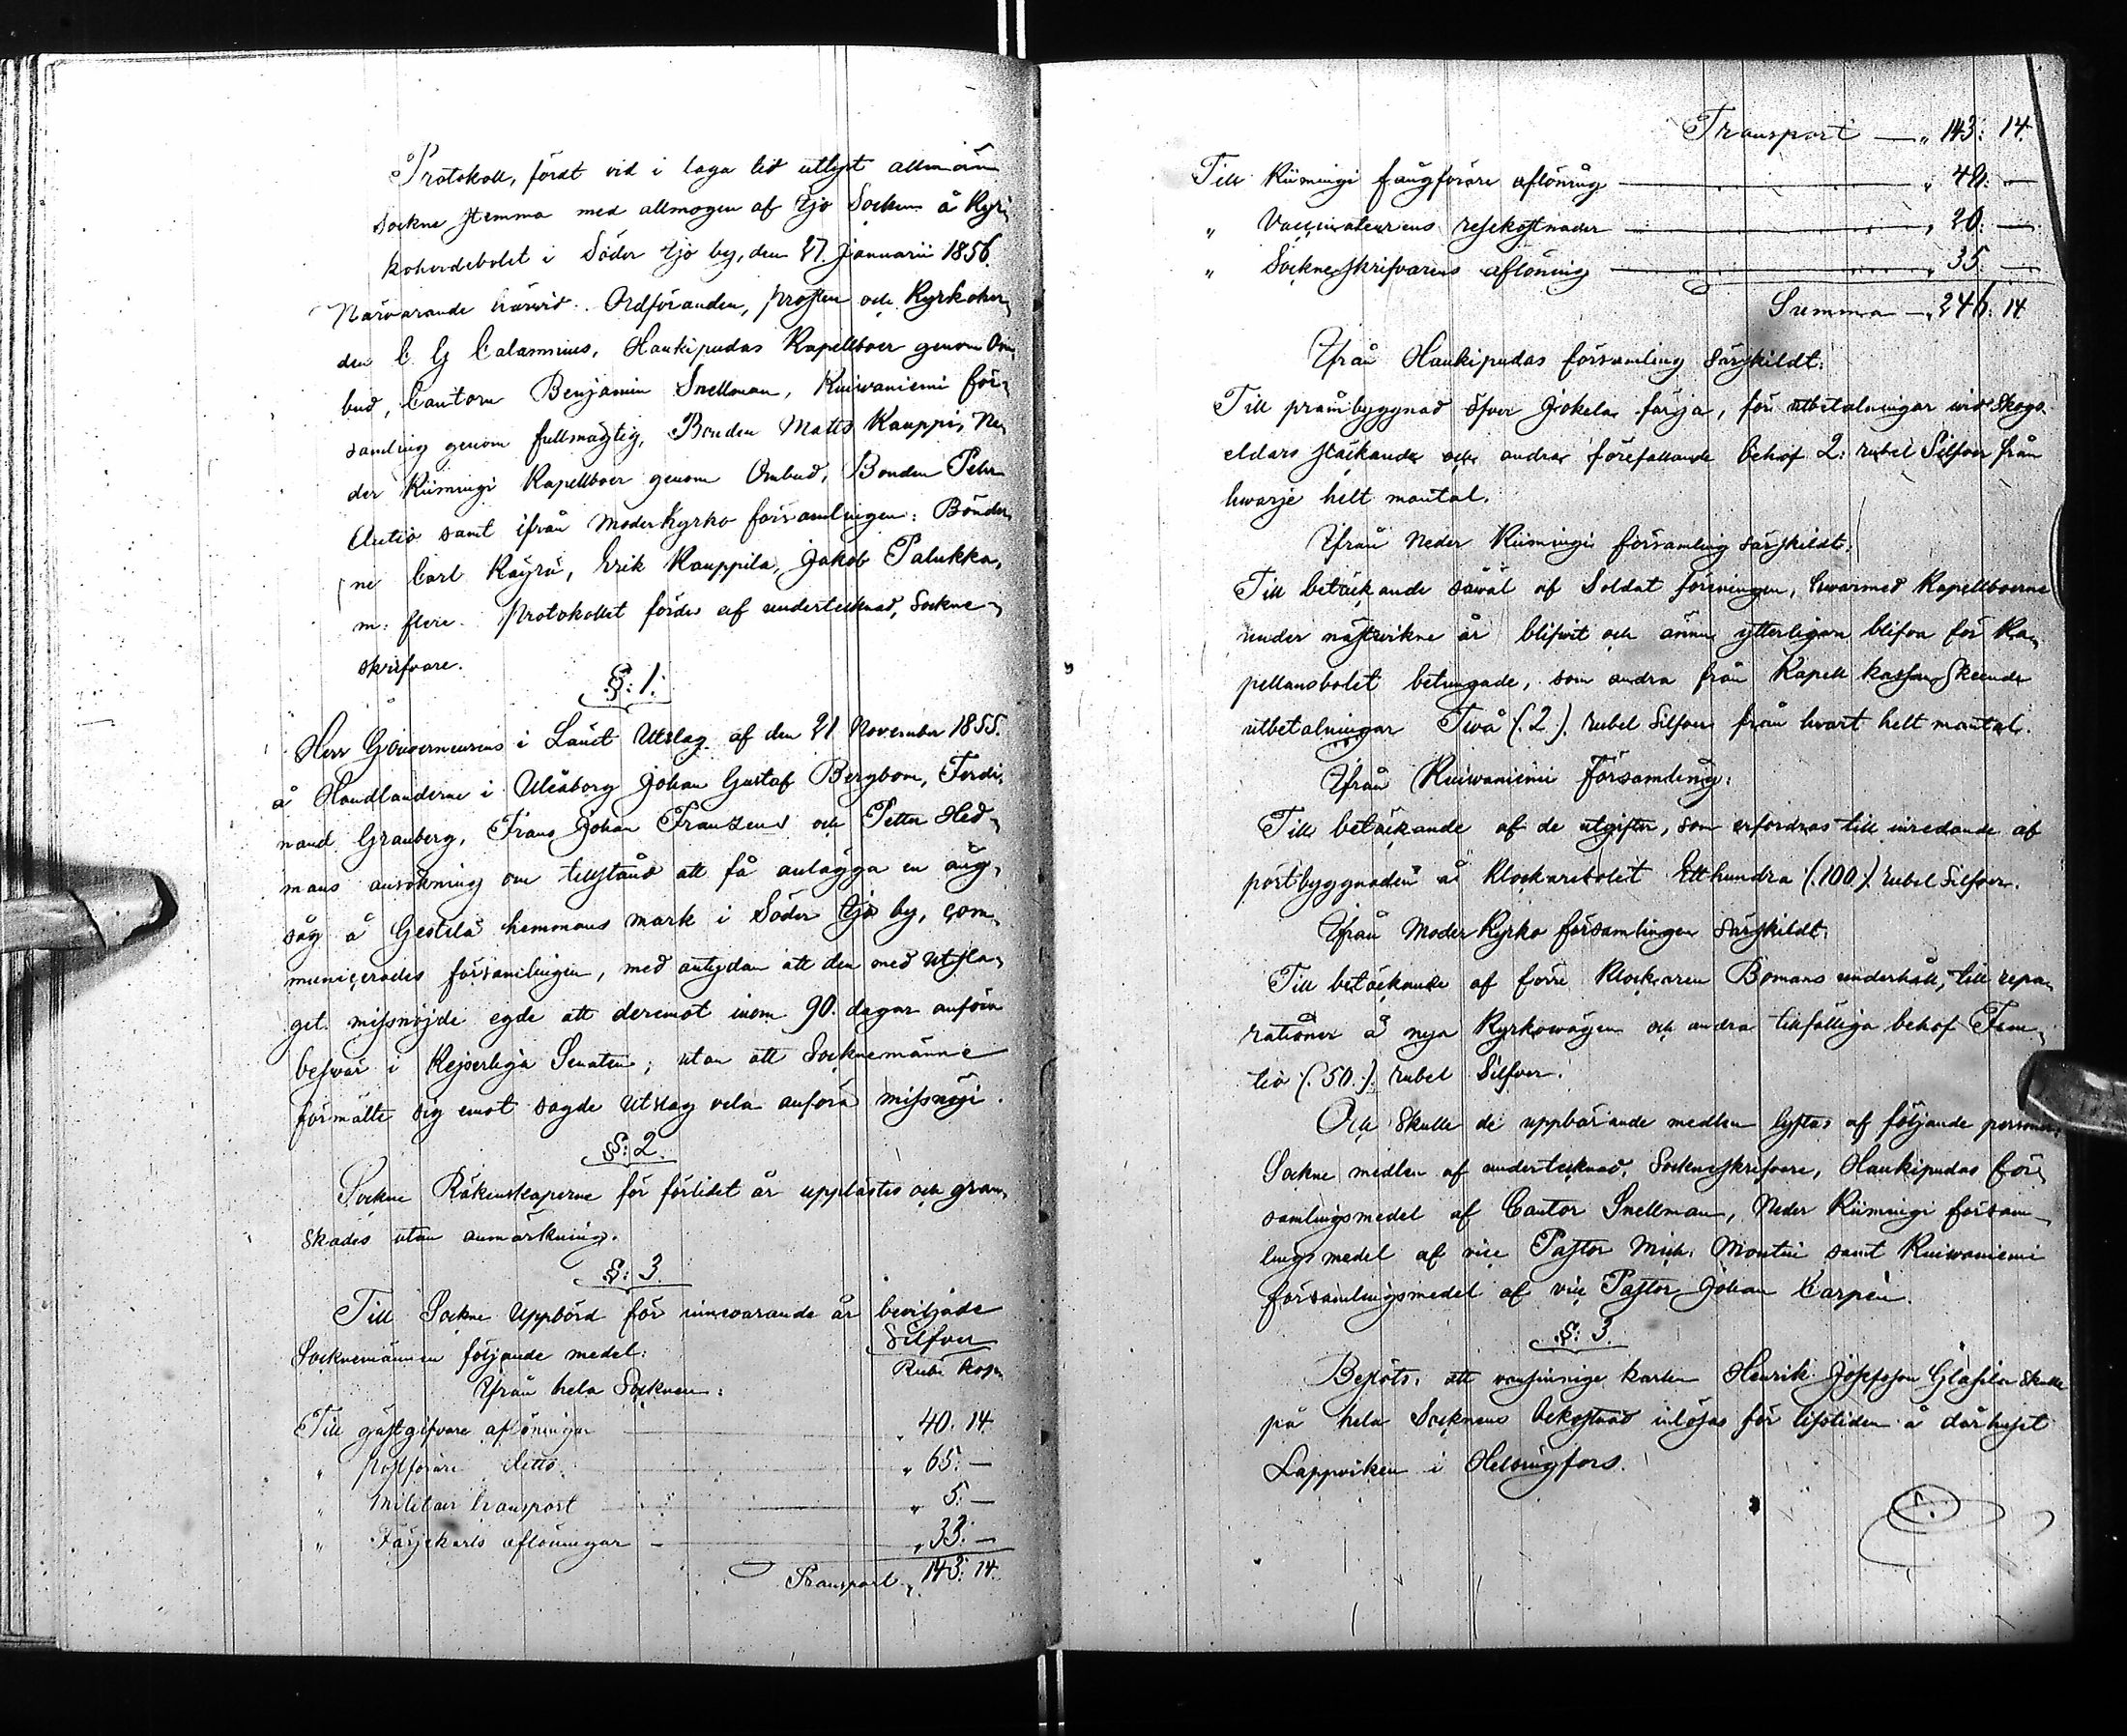 Protokoll, fördt vid i laga tid utlyst allmän
sockne stemma med allmogen af Ijo Socken å Kyr-
koherdebolet i Söder Ijo by, den 27. Januarii 1856.
Närvarande härvid. Ordföranden, prosten och Kyrkoher-
den C G Calamnius, Haukipudas Kapellboer genom Om-
bud, Cantorn Benjamin Snellman, Kuivaniemi för-
samling genom fullmägtig, Bonden Matts Kauppi, Ne-
der Kiimingi Kapellboer genom Ombud, Bonden Pehr
Autio samt ifrån Moderkyrko församlingen: Bönder-
ne Carl Räyrä, Erik Kauppila, Jakob Palukka,
m: flere. Protokollet fördes af undertecknad, Sockne-
skrifvare.
§: 1.
Herr Gouverneurens i Länet Utslag af den 21 November 1855.
å Handlanderne i Uleåborg Johan Gustaf Bergbom, Ferdi-
nand Granberg, Frans Johan Franzens och Petter Hed-
mans ansökning om tillstånd att få anlägga en ång-
såg å Gestilä hemmans mark i Söder Ijo by, com-
municerades församlingen, med antydan att den med utsla-
get missnöjde egde att deremot inom 90. dagar anföra
besvär i Kejserliga Senaten; utan att Socknemänne
förmälte sig emot sagde Utslag vela anföra missnöje.
§: 2.
Sockne Räkenskaperne för förlidet år upplästes och gran-
skades utan anmärkning.
§: 3.
Till Sockne Uppbörd för innevarande år beviljade
Socknemännen följande medel: Silfver
Ifrån hela Socknen: Rub. Kop.
Till gästgifvare aflöningar " 40. 14.
" postförare ditto " 65. —
" Militair transport " 5. —
" Färjekarls aflöningar " 33. —
Transport " 143. 14.
Transport — " 143: 14.
Till Kiimingi fångförare aflöning " 48: —
" Vaccinateurens resekostnader " 20: —
" Sockneskrifvarens aflöning " 35. —
Summa — " 246: 14
Ifrån Haukipudas församling särskildt:
Till pråmbyggnad öfver Jokela färja, för utbetalningar wid Skogs-
eldars släckande och andra förefallande behof 2: rubel Silfver från
hwarje helt mantal.
Ifrån Neder Kiimingi församling särskildt,
Till betäckande såwäl af Soldat föreningen, hwarmed Kapellboerne
under nästvikne år blifvit och ännu ytterligare blifva för Ka-
pellansbolet betungade, som andra från Kapell kassan skeende
utbetalningar Twå (2.) rubel Silfver från hvart helt mantal.
Ifrån Kuiwaniemi Församling:
Till betäckande af de utgifter, som erfordras till inredande af
pörtbyggnaden å Klockarebolet Etthundra (100.) rubel Silfver.
Ifrån Moder Kyrko församlingen särskildt:
Till betäckande af förre Klockaren Bomans underhåll, till repa-
rationer å nya Kyrkowägen och andra tillfälliga behof Fem-
tio (50.) rubel Silfver.
Och skulle de uppbärande medlen lyftas af följande personer:
Sockne medlen af undertecknad, Sockneskrifvare, Haukipudas för-
samlingsmedel af Cantor Snellman, Neder Kiimingi försam-
lings medel af vice Pastor Mich: Montin samt Kuiwaniemi
församlingsmedel af vice Pastor Johan Carpén.
§: 3.
Beslöts, att vansinnige karlen Henrik Josefsson Gläsilä skulle
på hela Socknens bekostnad inlösas för lifstiden å dårhuset
Lappviken i Helsingfors.